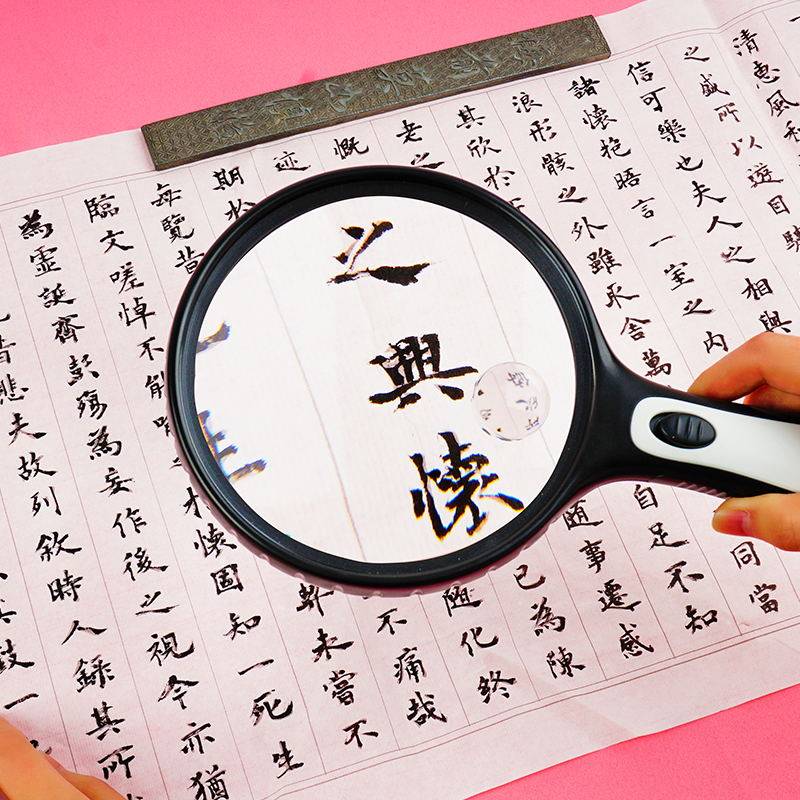 清惠風和
之盛所以遊目騁
信可樂也夫人之相與
諸懷抱晤言一室之內
浪形骸之外雖取舍萬
同當
其欣於
自足不知
老之
事遷感
慨
已為陳
迹
隨化終
期於
不痛哉
每覽昔
未嘗不
臨文嗟悼不能
懷固知一死生
為虛誕齊彭殤為妄作後之視今亦猶
悲夫故列敘時人錄其所
致一
之興懷